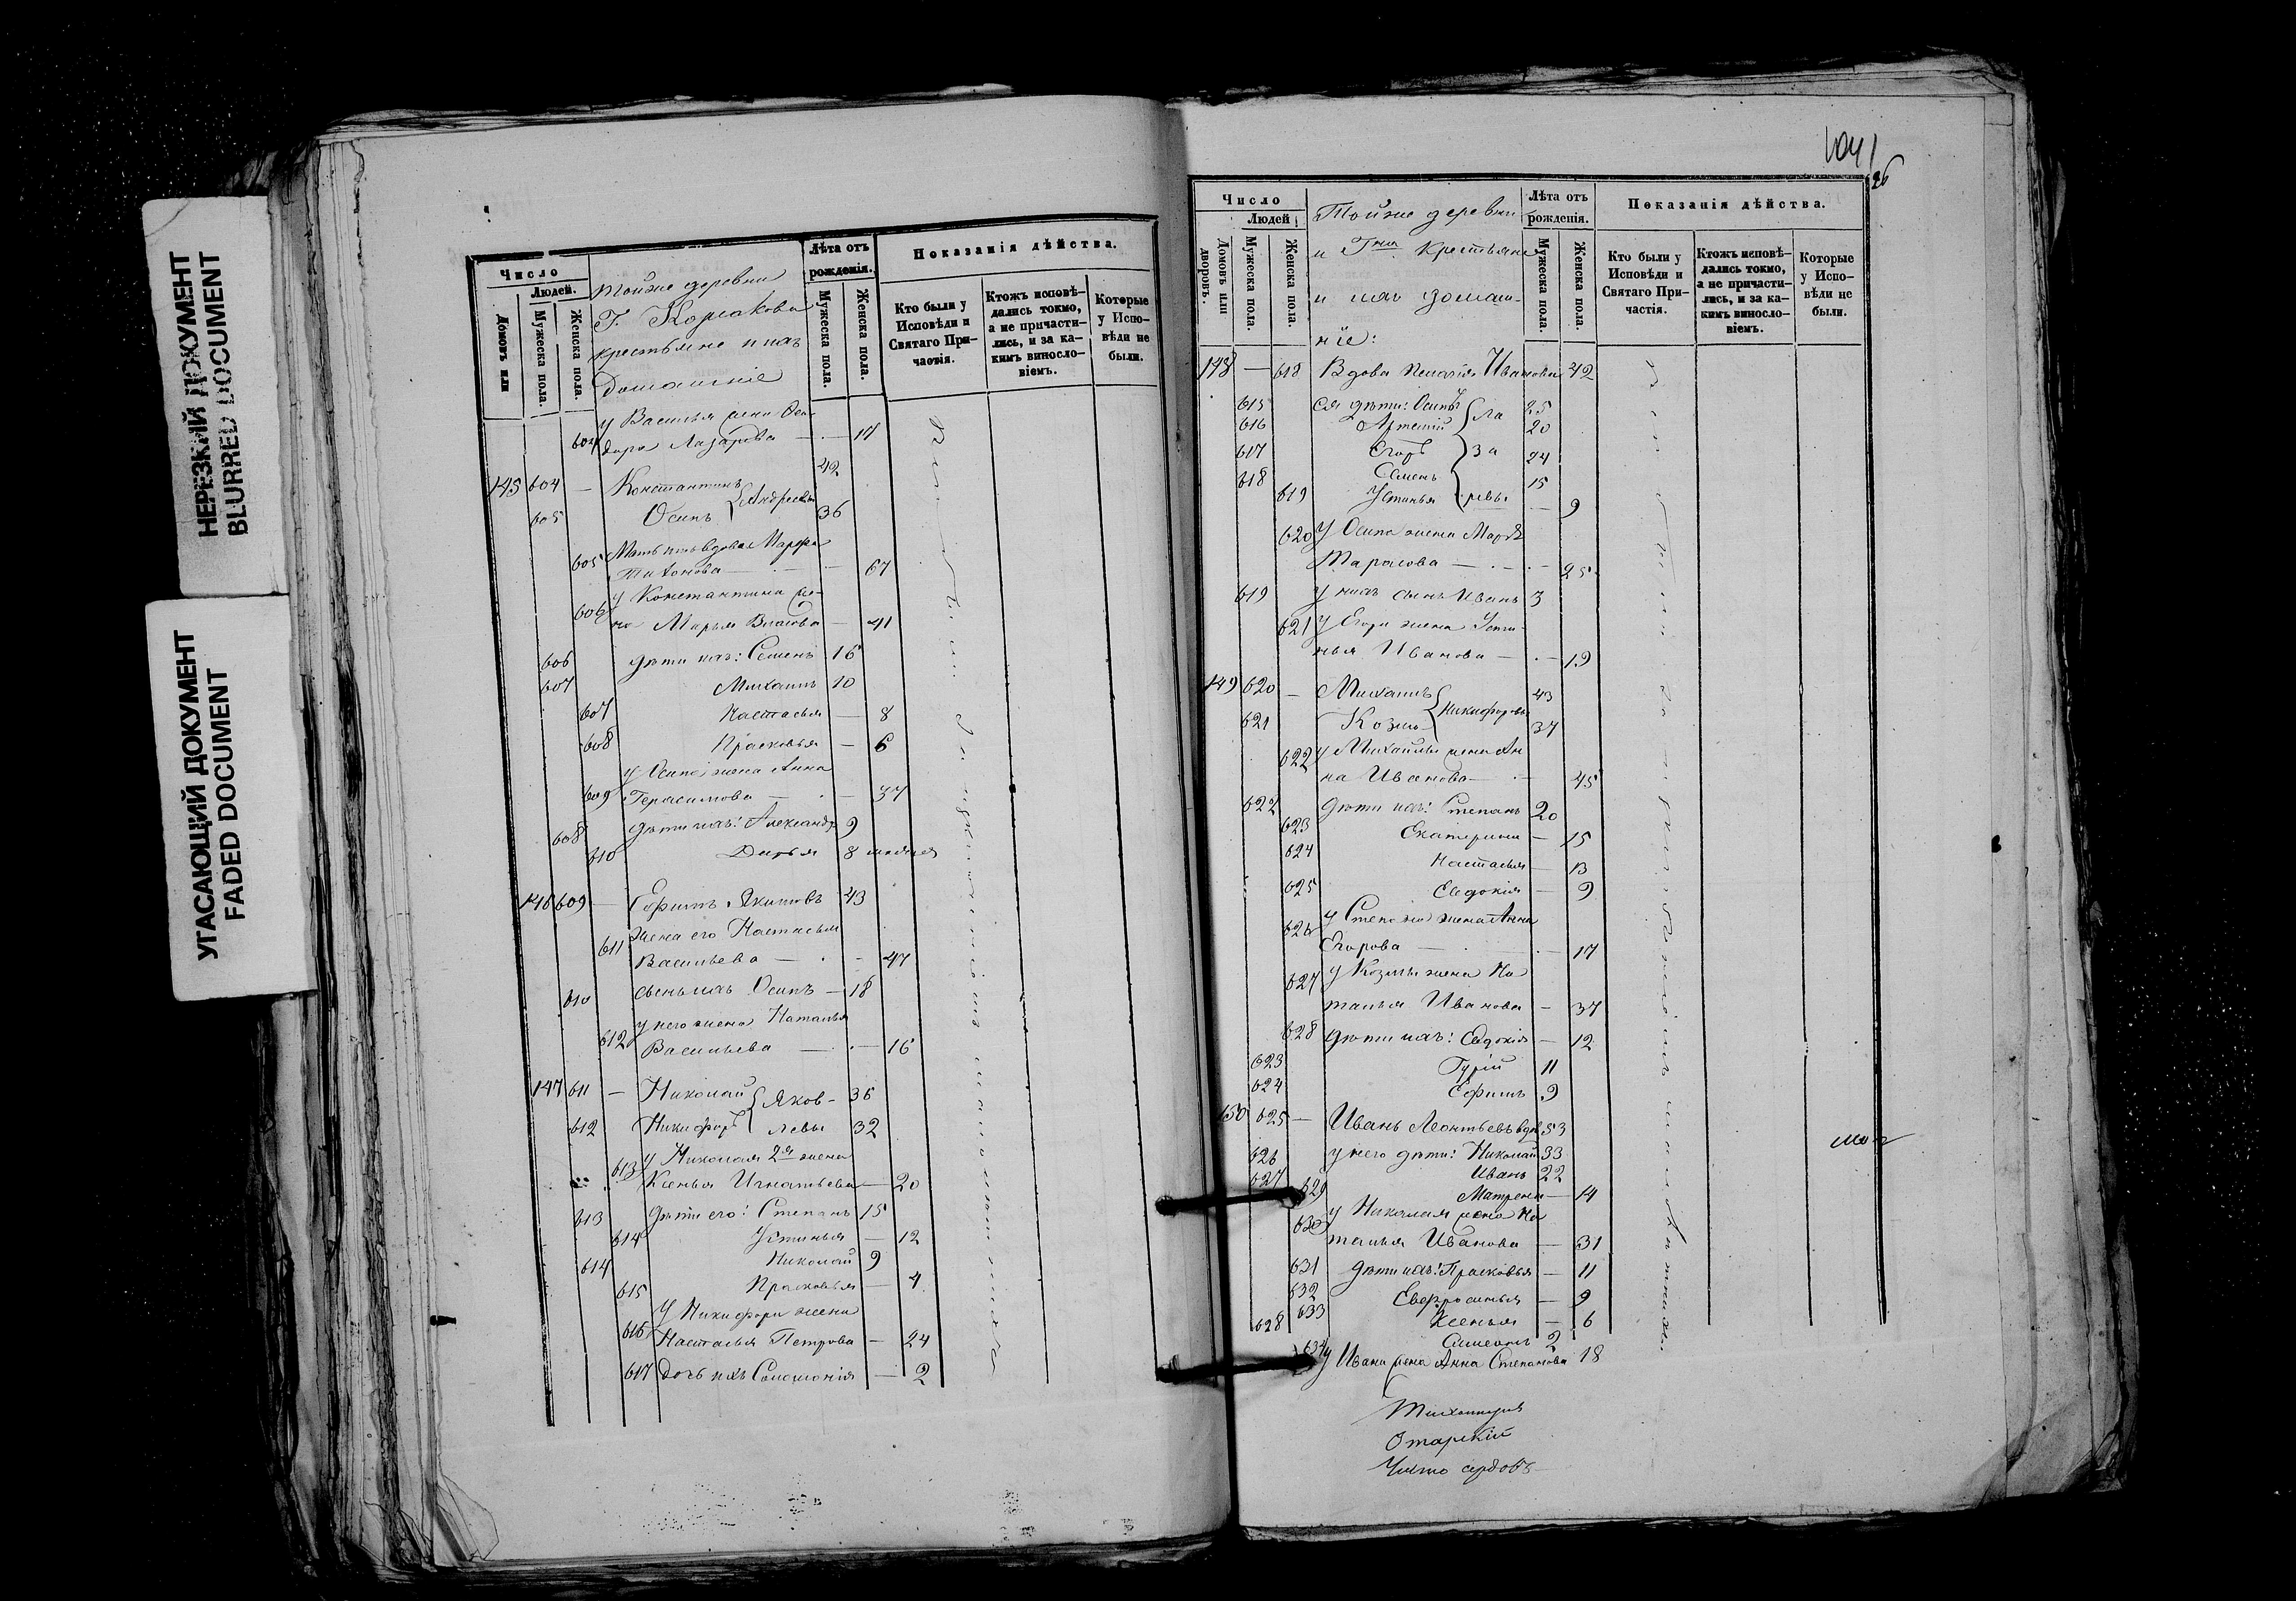 НЕРЕЗКИЙ ДОКУМЕНТ
BLURRED DOCUMENT
УГАСАЮЩИЙ ДОКУМЕНТ
FADED DOCUMENT
Число
Людей.
Домовъ или
Мужеска пола.
Женска пола.
Тойже деревни
Г. Корсакова
крестьяне и ихъ
домашніе
Лѣта отъ рожденія.
Мужеска пола.
Женска пола.
Показанія дѣйства.
Кто были у Исповѣди и Святаго Причастія.
Ктожъ исповѣдались токмо, а не причастились, и за какимъ винословіемъ.
Которые у Исповѣди не были.
у Василья жена Ѳео-
604 дора Лазарева — 17
145 604 — Константинъ 42
605 Осипъ Андреевы 36
605 Мать ихъ вдова Марфа
Тихонова — 67
606 у Константина же-
на Марья Власова — 41
606 дѣти ихъ: Семенъ 16
607 Михаилъ 10
607 Настасья — 8
608 Прасковья — 6
у Осипа жена Анна
609 Герасимова — 37
608 дѣти ихъ: Александръ 9
610 Дарья 8
146 609 — Ефимъ Якимовъ 43
жена его Настасья
611 Васильева — 47
610 сынъ ихъ Осипъ — 18
у него жена Наталья
612 Васильева — 16
147 611 — Николай Яков- 36
612 Никифоръ левы 32
613 у Николая 2я жена
Ксенья Игнатьева — 20
613 дѣти его: Степанъ 15
614 Устинья — 12
614 Николай 9
615 Прасковья — 4
у Никифора жена
616 Настасья Петрова — 24
617 дочь ихъ Соломонія — 2
1041
Число
Людей
Домовъ или дворовъ.
Мужеска пола.
Женска пола.
Тойже деревни
и Гна крестьяне
и ихъ домаш-
ніе:
Лѣта отъ рожденія.
Мужеска пола.
Женска пола.
Показанія дѣйства.
Кто были у Исповѣди и Святаго Причастія.
Ктожъ исповѣдались токмо, а не причастились, и за какимъ винословіемъ.
Которые у Исповѣди не были.
148 — 618 Вдова Пелагія Иванова 42
615 Ея дѣти: Осипъ Ла 25
616 Артемій 20
617 Егоръ за 24
618 Семенъ 15
619 Устинья ревы — 9
620 у Осипа жена Марѳа
Тарасова — 25
619 у нихъ сынъ Иванъ 3
621 у Егора жена Усти-
нья Иванова — 19
149 620 — Михаилъ 43
621 Козма Никифоровы 37
622 у Михайлы жена Ан
на Иванова — 45
622 дѣти ихъ: Степанъ 20
623 Екатерина — 15
624 Настасья — 13
625 Евдокія — 9
626 у Степана жена Анна
Егорова — 17
627 у Козмы жена На
талья Иванова — 37
628 дѣти ихъ: Евдокія — 12
623 Гурій 11
624 Ефимъ 9
150 625 — Иванъ Леонтьевъ вдов 53
626 у него дѣти: Николай 33
627 Иванъ 22
629 Матрена — 14
630 у Николая жена На
талья Иванова — 31
631 дѣти ихъ: Прасковья — 11
632 Евфросинья — 9
633 Ксенья — 6
628 Симеонъ 2
634 у Ивана жена Анна Степанова 18